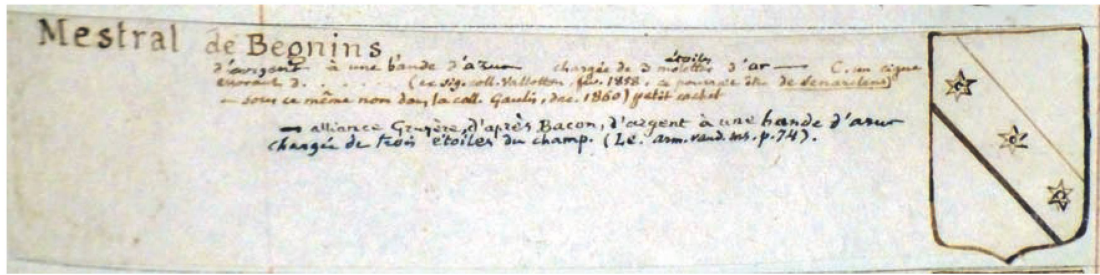 Mestral de Begnins
étoiles
d'argent à une bande d'azur chargée de 3 molettes d'or — C. un cigne
essorant d. . . . . (ex sig. coll. Vallotton, fév. 1858, ce pourrait être de Senarclens)
— sous ce même nom dans la coll. Gaulis, déc. 1860) petit cachet
— alliance Gruyère, d'après Bacon, d'argent à une bande d'azur
chargée de trois étoiles du champ. (Le. arm. vaud. ms. p. 74).